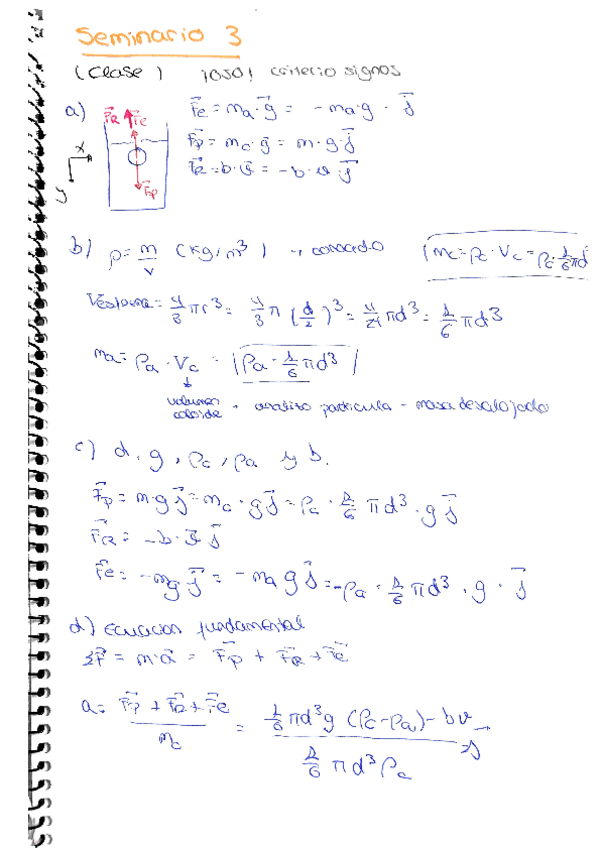 Seminario 3
(Clase) ¡OJO! criterio signos
a) F⃗R F⃗e F⃗e = ma · g⃗ = - ma · g · j⃗
x F⃗p = mc · g⃗ = m · g j⃗
y F⃗p F⃗R = b · v⃗ = - b · v j⃗
b) ρ = m/v (kg/m³) → conocido mc = ρc · Vc = ρc · 1/6 πd
Vesfera = 4/3 πr³ = 4/3 π (d/2)³ = 4/24 πd³ = 1/6 πd³
ma = ρa · Vc = ρa · 1/6 πd³
volumen coloide partícula - masa desalojado
c) d, g, ρc, ρa y b.
F⃗p = m · g j⃗ = mc · g j⃗ = ρc · 1/6 πd³ · g j⃗
F⃗R = - b · v j⃗
F⃗e = - mg j⃗ = - ma g j⃗ = - ρa · 1/6 πd³ · g · j⃗
d) Ecuación fundamental
ΣF⃗ = m · a⃗ = F⃗p + F⃗R + F⃗e
a = (F⃗p + F⃗R + F⃗e)/mc = (1/6 πd³g (ρc - ρa) - bv)/(1/6 πd³ρc) j⃗